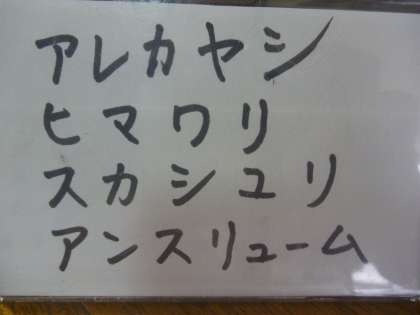 アレカヤシ
ヒマワリ
スカシユリ
アンスリューム